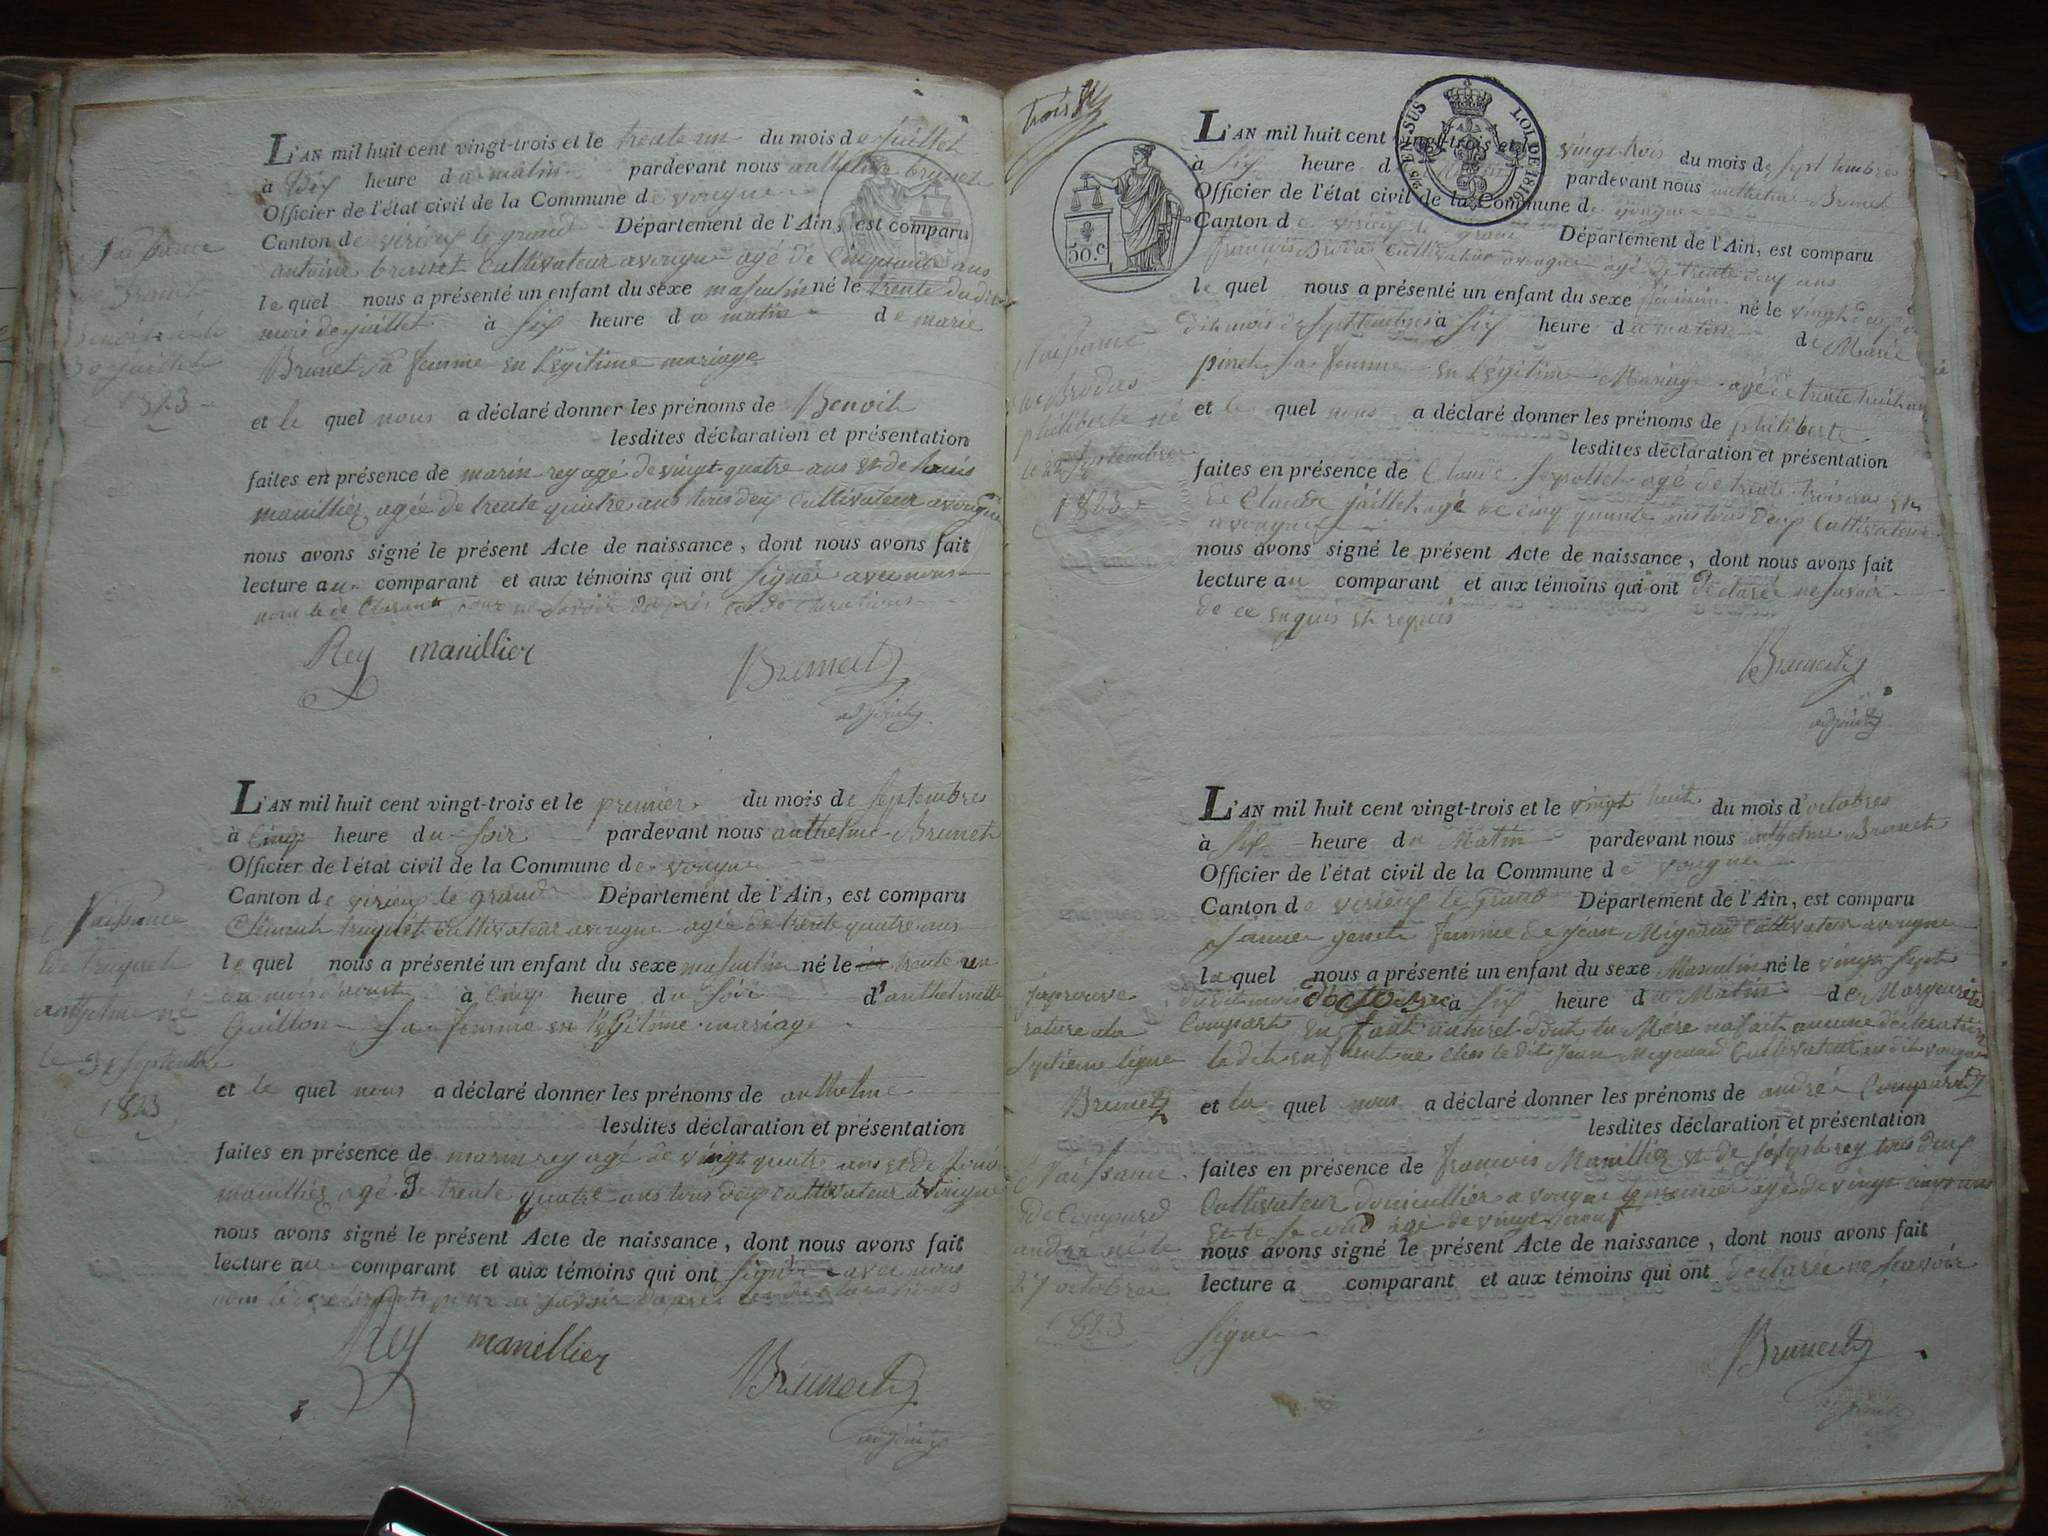 L'AN mil huit cent vingt-trois et le trente un du mois de Juillet
à dix heure du matin pardevant nous anthelme brunet
Officier de l'état civil de la Commune de vongne
Canton de virieux le grand Département de l'Ain, est comparu
antoine brunet Cultivateur a vongne agé de Cinquante ans
le quel nous a présenté un enfant du sexe masculin né le trente du dit
mois de juillet à six heure du matin de marie
Brunet sa femme en Légitime mariage
et le quel nous a déclaré donner les prénoms de Benoit
lesdites déclaration et présentation
faites en présence de marin rey agé de vingt quatre ans et de Louis
manillier agée de trente quatre ans tous deux Cultivateur a vongne
nous avons signé le présent Acte de naissance, dont nous avons fait
lecture au comparant et aux témoins qui ont signée avec nous
non le de Clarant pour ne savoir daprés ces de Clarations
Rey manillier
Brunet
adjoint
Naissance
de Brunet
Benoit né le
30 juillet
1823
L'AN mil huit cent vingt-trois et le premier du mois de Septembre
à Cinq heure du Soir pardevant nous anthelme Brunet
Officier de l'état civil de la Commune de vongne
Canton de virieux le grand Département de l'Ain, est comparu
Clément truquet Cultivateur a vongne agée de trente quatre ans
le quel nous a présenté un enfant du sexe masculin né le trente un
du mois d'aoust à Cinq heure du Soir d'anthelmette
Guillon Sa femme en légitime mariage
et le quel nous a déclaré donner les prénoms de anthelme
lesdites déclaration et présentation
faites en présence de marin rey agé de vingt quatre ans et de Louis
manillier agé de trente quatre ans tous deux Cultivateur a vongne
nous avons signé le présent Acte de naissance, dont nous avons fait
lecture au comparant et aux témoins qui ont signée avec nous
non le pour ne savoir daprés ces déclarations
Rey manillier
Brunet
adjoint
Naissance
de truquet
anthelme né
le Septembre
1823
trois
50.C
25 EN SUS LOI DE 1816
L'AN mil huit cent vingt-trois et le vingt-trois du mois de Septembre
à Six heure du Matin pardevant nous anthelme Brunet
Officier de l'état civil de la Commune de vongne
Canton de virieux le grand Département de l'Ain, est comparu
François Cultivateur a vongne agé de trente deux ans
le quel nous a présenté un enfant du sexe féminin né le vingt deux du
dit mois de Septembre à Six heure du matin de Marie
pinet sa femme en Légitime Mariage agé de trente huit ans
et le quel nous a déclaré donner les prénoms de philiberte
lesdites déclaration et présentation
faites en présence de agé de trente trois ans et
de Claude Jaillet agé de cinquante ans tous deux Cultivateur
a vongne
nous avons signé le présent Acte de naissance, dont nous avons fait
lecture au comparant et aux témoins qui ont déclarée ne savoir
de ce enquis et requis
Brunet
adjoint
Naissance
de
philiberte né
le 22 Septembre
1823
L'AN mil huit cent vingt-trois et le vingt huit du mois d'octobres
à Six heure du Matin pardevant nous anthelme Brunet
Officier de l'état civil de la Commune de vongne
Canton de virieux le Grand Département de l'Ain, est comparu
Janne genet femme de jean Cultivateur a vongne
la quel nous a présenté un enfant du sexe Masculin né le vingt Sept
du dit mois d'octobre à Six heure du Matin de Marguerite
Compart En fant naturel dont la Mére na fait aucune déclaration
la dit enfant né ches le dit Jean Cultivateur au dit vongne
et la quel nous a déclaré donner les prénoms de andré Compard
lesdites déclaration et présentation
faites en présence de francois Manillier et de joseph rey tous deux
Cultivateur domicillier a vongne le premier agé de vingt cinq ans
et le Second agé de vingt neuf
nous avons signé le présent Acte de naissance, dont nous avons fait
lecture a comparant et aux témoins qui ont déclarée ne scavoir
signer
Brunet
adjoint
japrouve
rature a la
septieme ligne
Brunet
Naissance
de Compard
andré né le
27 octobre
1823